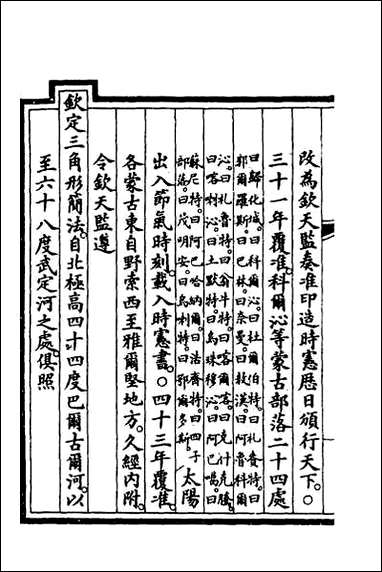 改為欽天監奏准印造時憲歷日頒行天下。○
三十一年覆准。科爾沁等蒙古部落二十四處
曰歸化城。曰科爾沁。曰杜爾伯特。曰札賚特。曰
郭爾羅斯。曰巴林。曰奈曼。曰敖漢。曰阿魯科爾
沁。曰札魯特。曰翁牛特。曰喀爾喀。曰克什克騰。
曰喀喇沁。曰土默特。曰烏珠穆沁。曰阿巴噶。曰
蘇尼特。曰阿巴哈納爾。曰浩齊特。曰四子
部落。曰茂明安。曰烏喇特。曰鄂爾多斯。
太陽
出入節氣時刻。載入時憲書。○四十三年覆准。
各蒙古東自野索西至雅爾堅地方。久經内附。
令欽天監遵
欽定三角形簡法。自北極高四十四度巴爾古爾河。以
至六十八度武定河之處。俱照